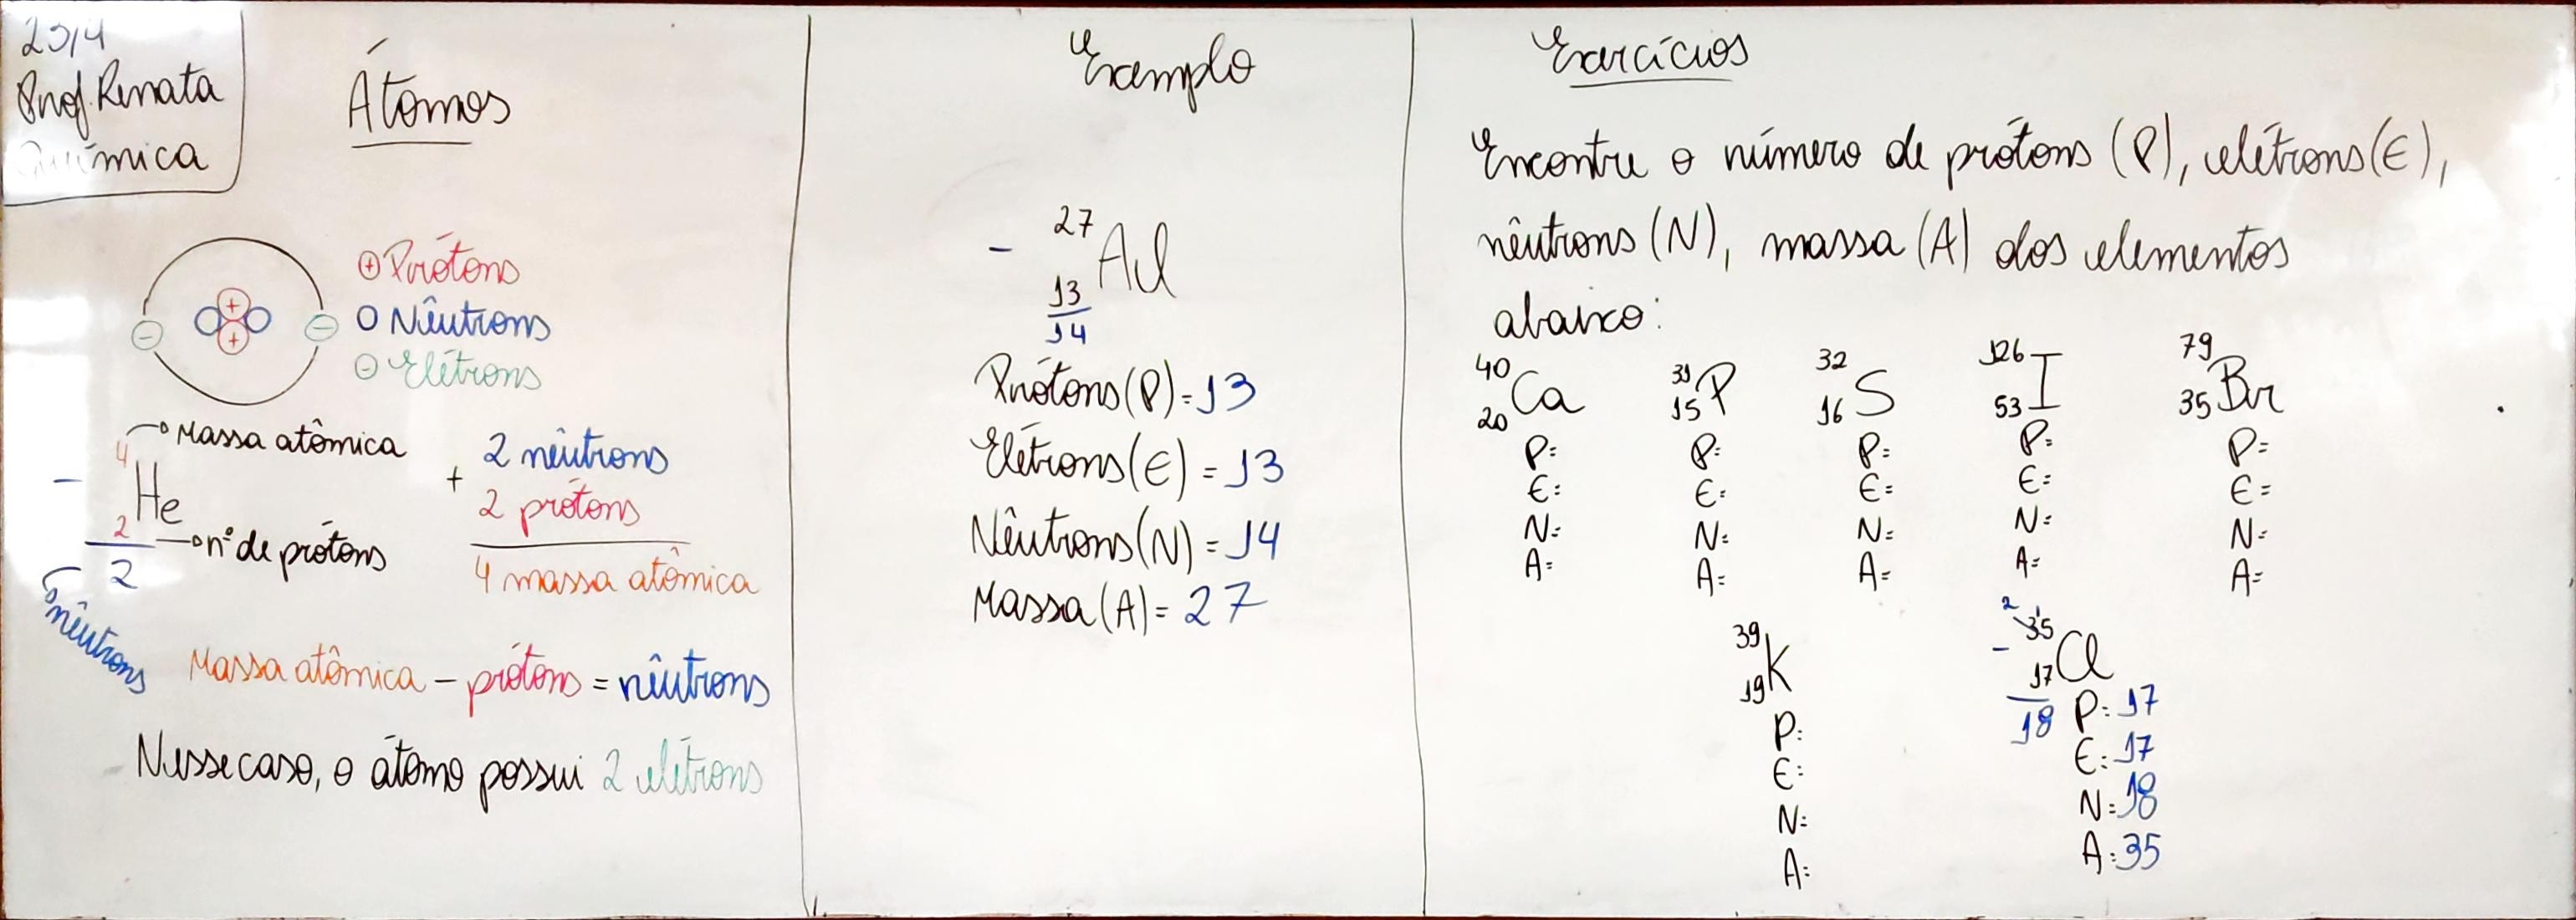 25/4
Prof. Renata
Química
Átomos
⊕ Prótons
O Nêutrons
⊖ Elétrons
Massa atômica
4
- He
2
nº de prótons
2
nêutrons
2 nêutrons
+ 2 prótons
4 massa atômica
Massa atômica - prótons = nêutrons
Nesse caso, o átomo possui 2 elétrons
Exemplo
27
- Al
13
14
Prótons (P) = 13
Elétrons (E) = 13
Nêutrons (N) = 14
Massa (A) = 27
Exercícios
Encontre o número de prótons (P), elétrons (E),
nêutrons (N), massa (A) dos elementos
abaixo:
40
Ca
20
P=
E=
N=
A=
31
P
15
P=
E=
N=
A=
32
S
16
P=
E=
N=
A=
126
I
53
P=
E=
N=
A=
79
Br
35
P=
E=
N=
A=
39
K
19
P=
E=
N=
A=
2 1
35
- Cl
17
18
P= 17
E= 17
N= 18
A= 35